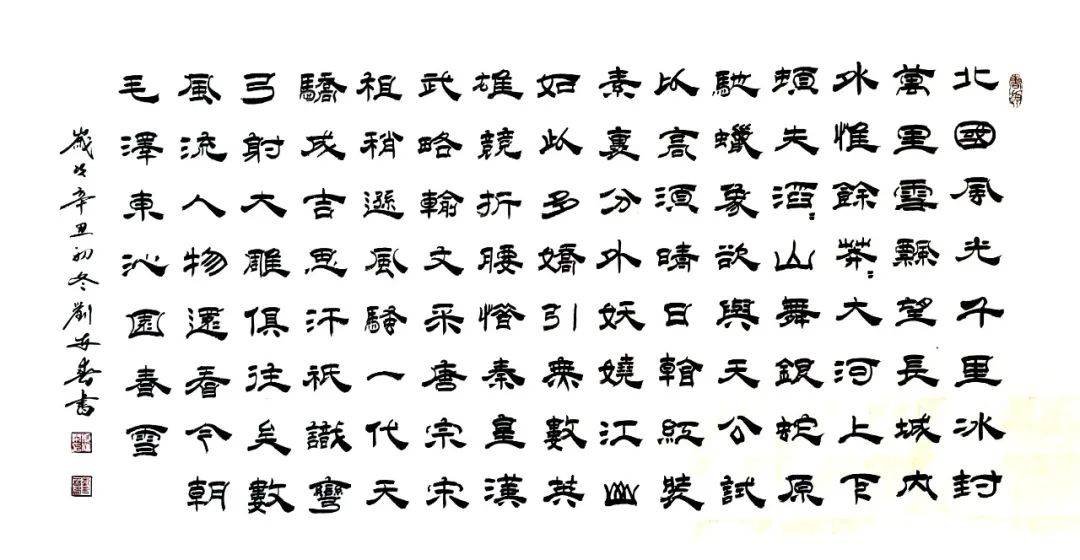 北國風光千里冰封
萬里雪飄望長城内
外惟餘莽〻大河上下
頓失滔〻山舞銀蛇原
馳蠟象欲與天公試
比高須晴日看紅裝
素裹分外妖嬈江山
如此多嬌引無數英
雄競折腰惜秦皇漢
武略輸文采唐宗宋
祖稍遜風騷一代天
驕成吉思汗祇識彎
弓射大雕俱往矣數
風流人物還看今朝
毛澤東沁園春雪
歲次辛丑初冬劉書